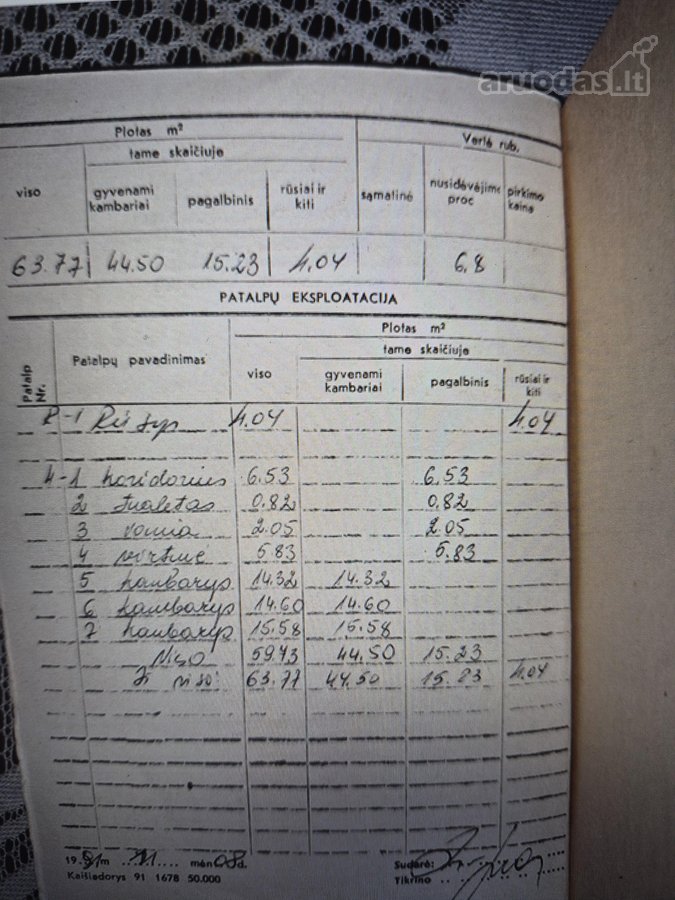 aruodas.lt
Plotas m² Vertė rub.
tame skaičiuje
viso gyvenami kambariai pagalbinis rūsiai ir kiti sąmatinė nusidėvėjimo proc pirkimo kaina
63.77 44.50 15.23 4.04 6.8
PATALPŲ EKSPLOATACIJA
Plotas m²
tame skaičiuje
Patalp Nr. Patalpų pavadinimas viso gyvenami kambariai pagalbinis rūsiai ir kiti
R-1 Rūsys 4.04 4.04
4-1 koridorius 6.53 6.53
2 tualetas 0.82 0.82
3 vonia 2.05 2.05
4 virtuvė 5.83 5.83
5 kambarys 14.32 14.32
6 kambarys 14.60 14.60
7 kambarys 15.58 15.58
Viso 59.73 44.50 15.23
Iš viso: 63.77 44.50 15.23 4.04
19 91 m 11 mėn 08 d. Sudarė:
Kaišiadorys 91 1678 50.000 Tikrino